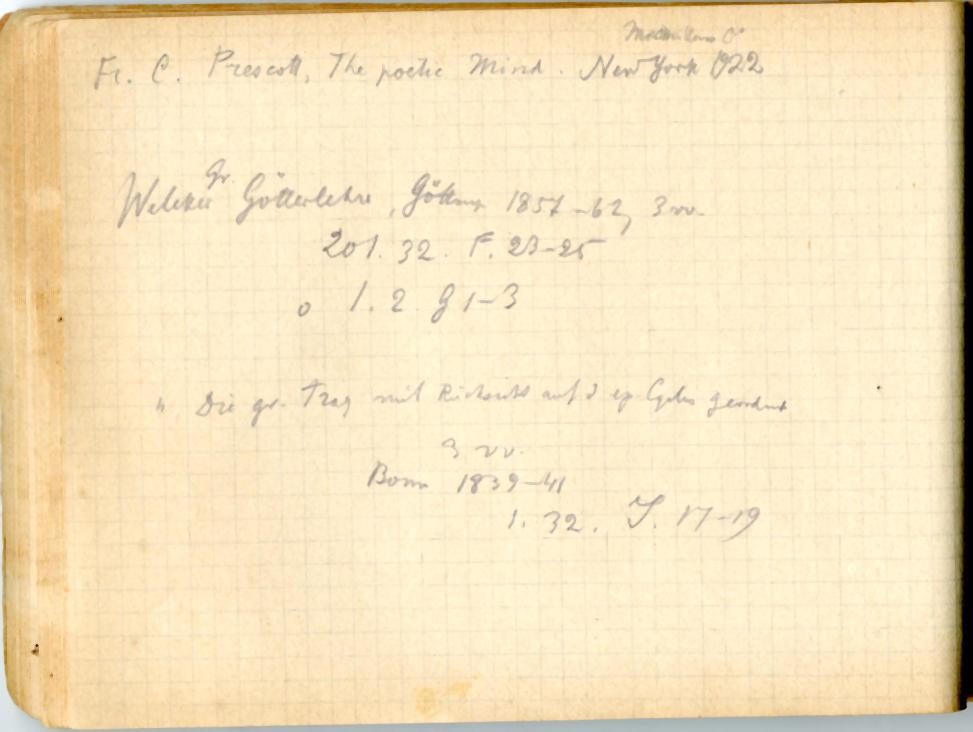 Macmillan Co
Fr. C. Prescott, The poetic Mind. New York 1922
Gr.
Welcker Götterlehre, Götting 1857–62, 3 vv.
201. 32. F. 23–25
o 1. 2. G 1–3
" Die gr. Trag mit Rücksicht auf d ep. Cyclus geordnet
3 vv.
Bonn 1839–41
1. 32. I. 17–19